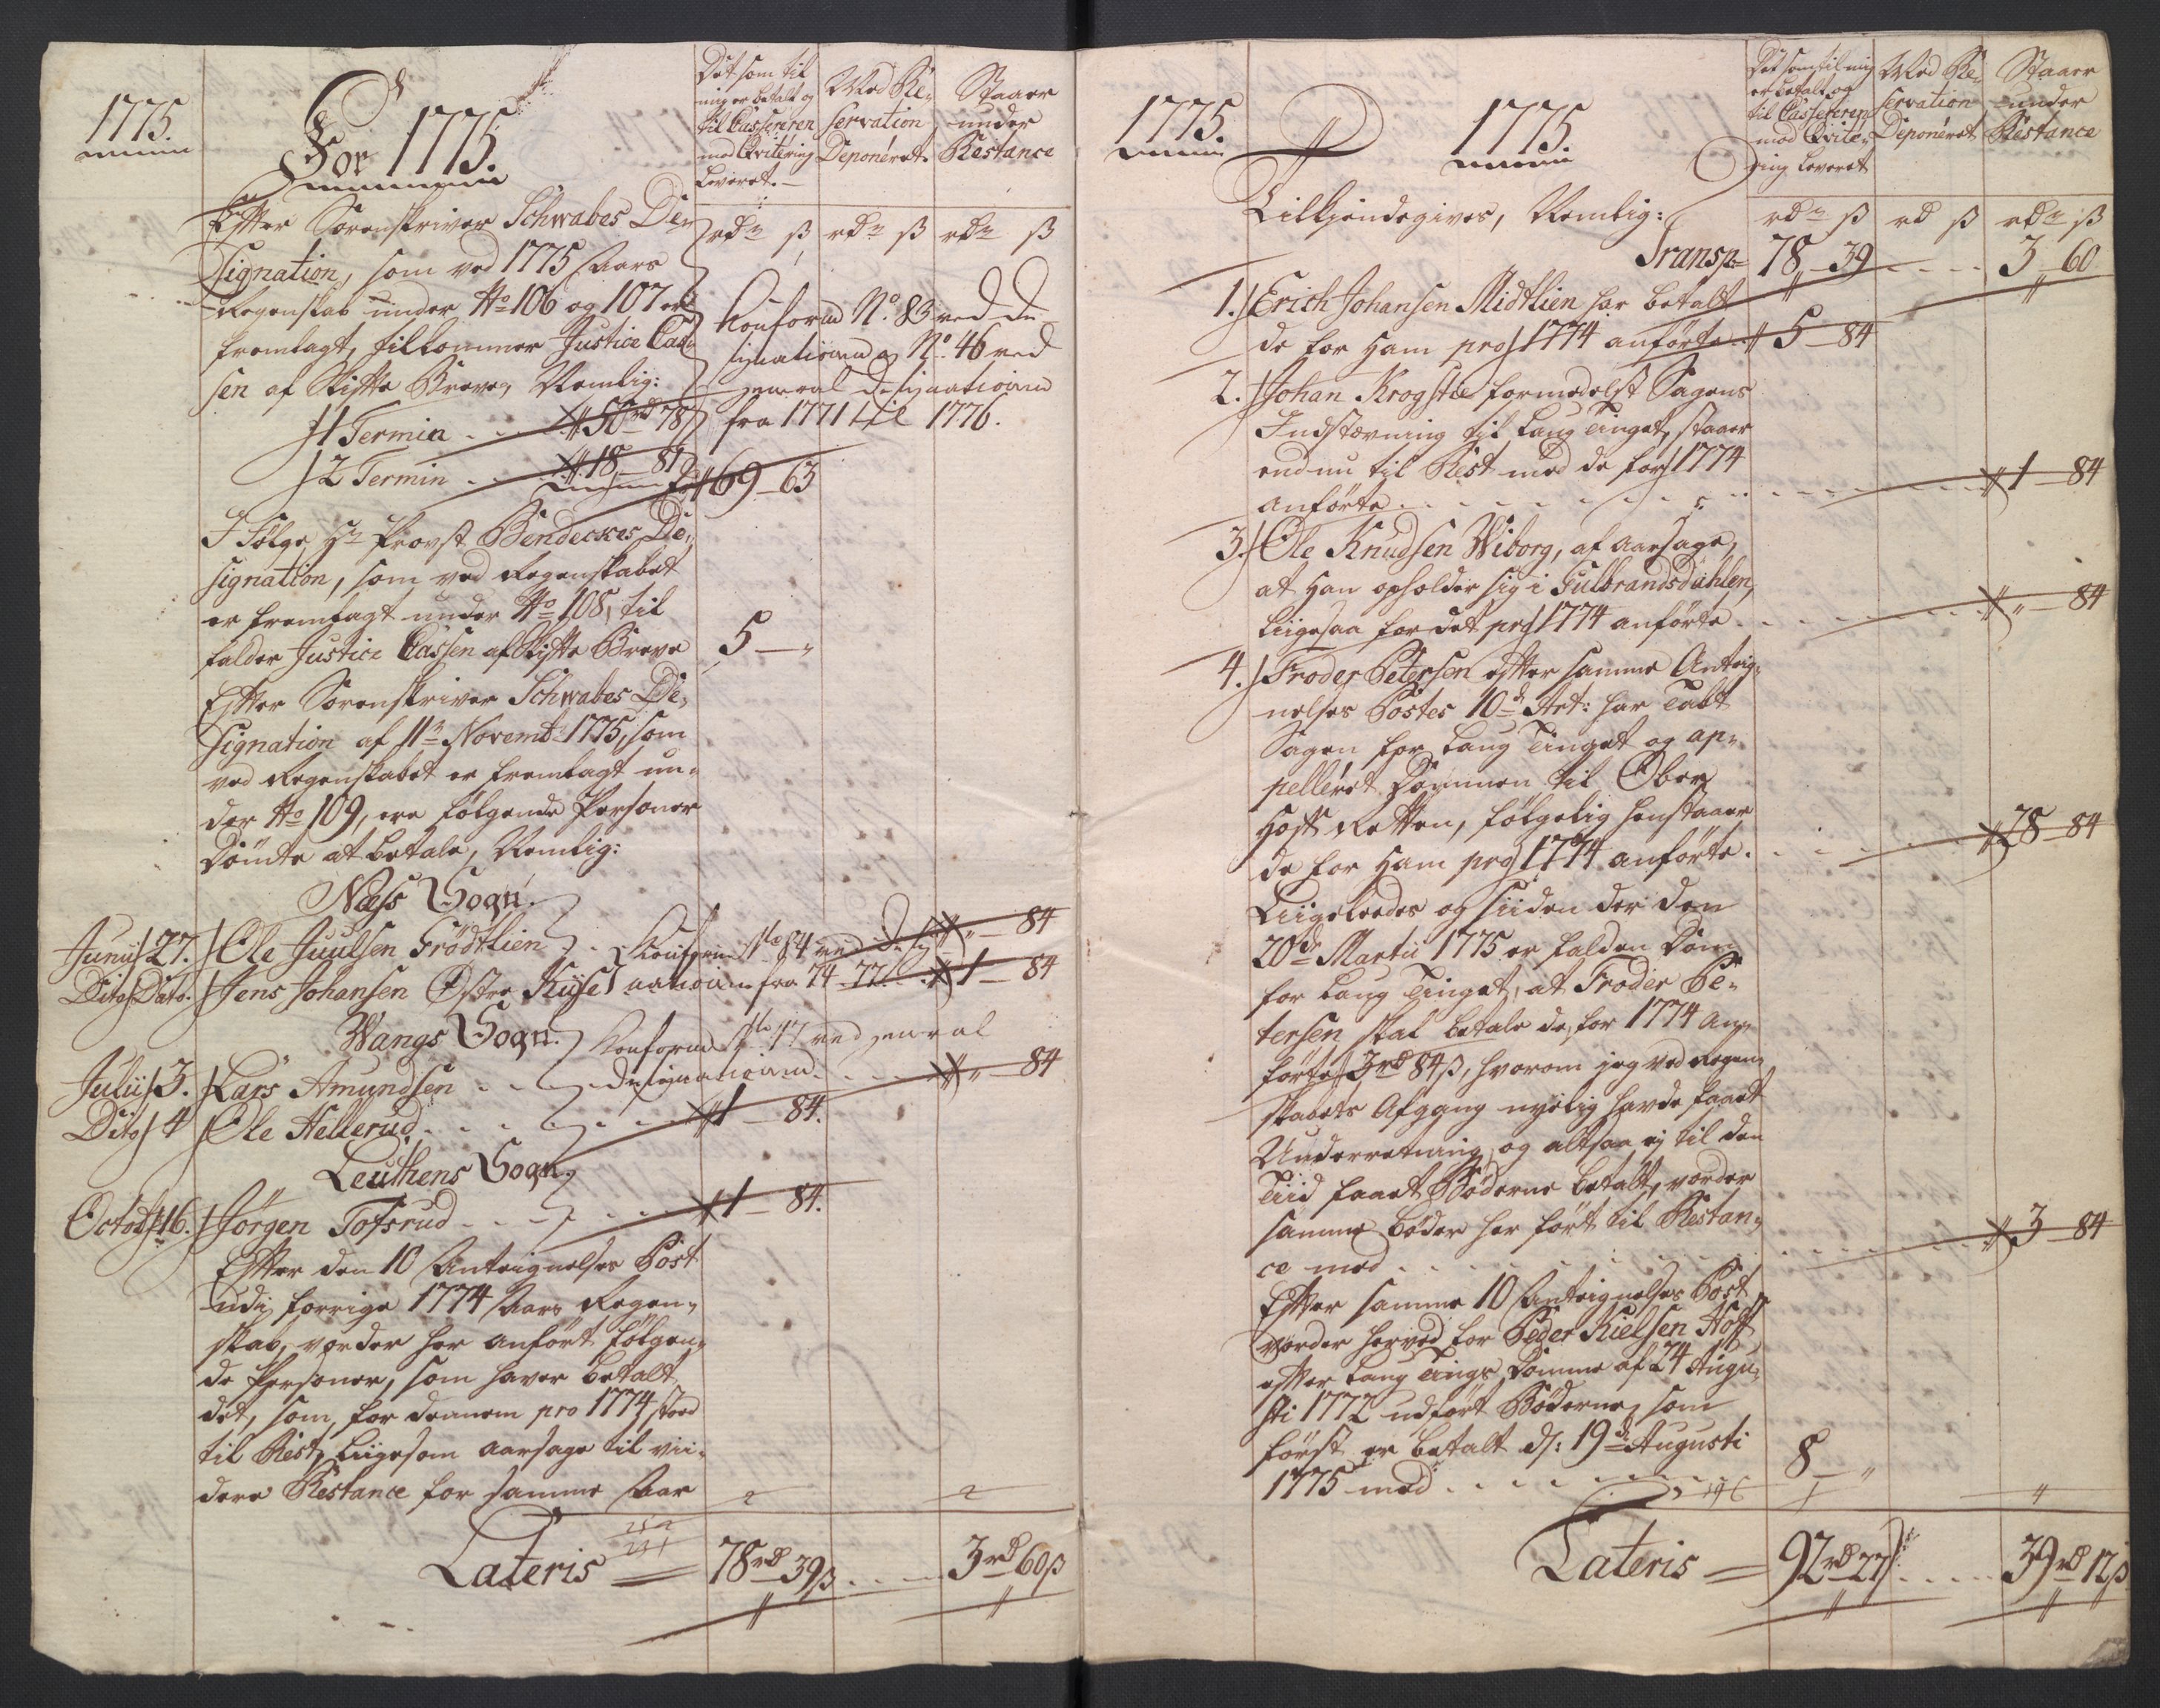 1775.
For 1775.
Det som til
mig er betalt og
til Casseren
mod Qvitering
leveret.
Med Re-
servation
Deponéret.
Staaer
under
Restance
rdr ß rdr ß rdr ß
Efter Sorenskriver Schwabes De-
signation, som ved 1775 Aars
Regenskab under No 106 og 107 er
fremlagt, tilkommer Justice Cas-
sen af Skifte Breve, Nemlig:
Konform No. 83 ved De-
signationen og No. 46 ved
general Designationen
fra 1771 til 1776.
1 Termin . . 50rd 78
2 Termin . . 18 - 81 69 - 63
I Følge Hr Provst Bendeckes De-
signation, som ved Regenskabet
er fremlagt under No 108, til-
falder Justice Cassen af Skifte Breve 5 - "
Efter Sorenskriver Schwabes De-
signation af 11 Novemb: 1775, som
ved Regenskabet er fremlagt un-
der No 109, ere følgende Personer
Dömte at betale, Nemlig:
Næss Sogn.
Junii 27. Ole Juulsen Frödtlien . . Konform No 84 ved Desig- " - 84
Dito Dato. Jens Johansen Østre Kiise nationen fra 74 - 77 1 - 84
Wangs Sogn. Konform No 47 ved general
Julii 3. Lars Amundsen . . . Designationen . . . " - 84
Dito 4 Ole Hellerud . . . 1 - 84.
Leuthens Sogn
Octob: 16. Jörgen Tofsrud . . . 1 - 84.
Efter den 10 Anteignelses Post
udi forrige 1774 Aars Regen-
skab, vorder her anfört fölgen-
de Personer, som haver betalt
det, som for dennem pro 1774 stoed
til Rest, liigesom aarsage til vii-
dere Restance for samme Aar
2 2
252
231
Lateris = 78rd 39ß . . . 3rd 60ß
1775.
1775.
Det som til mig
er betalt og
til Casseren
mod Qvite-
ring leveret
Med Re-
servation
Deponéret
Staaer
under
Restance
Tilkiendegives, Nemlig:
rdr ß rd ß rdr ß
Transp= 78 - 39 . . . . 3 - 60
1. Erich Johansen Midtlien har betalt
de for ham pro 1774 anförte . . 5 - 84
2. Johan Krogstie formedelst Sagens
Indstævning til Laug Tinget, staaer
endnu til Rest med de for 1774
anförte . . . . . . 1 - 84
3. Ole Knudsen Wiborg, af aarsage,
at han opholder sig i Gulbrandsdahlen,
liigesaa for det pro 1774 anförte . . . " - 84
4. Froder Petersen efter samme Anteig-
nelses Postes 10de Art: har Tabt
Sagen for Laug Tinget og ap-
pelleret Dommen til Ober
Hoff Retten, fölgelig henstaaer
de for ham pro 1774 anförte . . . 28 - 84
Liigeleedes og siiden der den
20de Martii 1775 er falden Dom
for Laug Tinget, at Froder Pe-
tersen skal betale de for 1774 An-
förte 3rd 84ß, hvorom jeg ved Regen-
skabets Afgang nyelig havde faaet
Underretning, og altsaa ej til den
Tiid faaet Böderne betalt, vorder
samme böder her fört til Restan-
ce med . . . . . . 3 - 84
Efter samme 10 Anteignelses Post
vorder herved for Peder Nielsen Hoff
efter Laug Tings Domme af 24 Augu-
sti 1772 udfört Böderne, som
först er betalt d: 19de Augusti
1775 med . . . . . 8 - "
196 1 4
Lateris = 92rd 27ß . . . 39rd 12ß